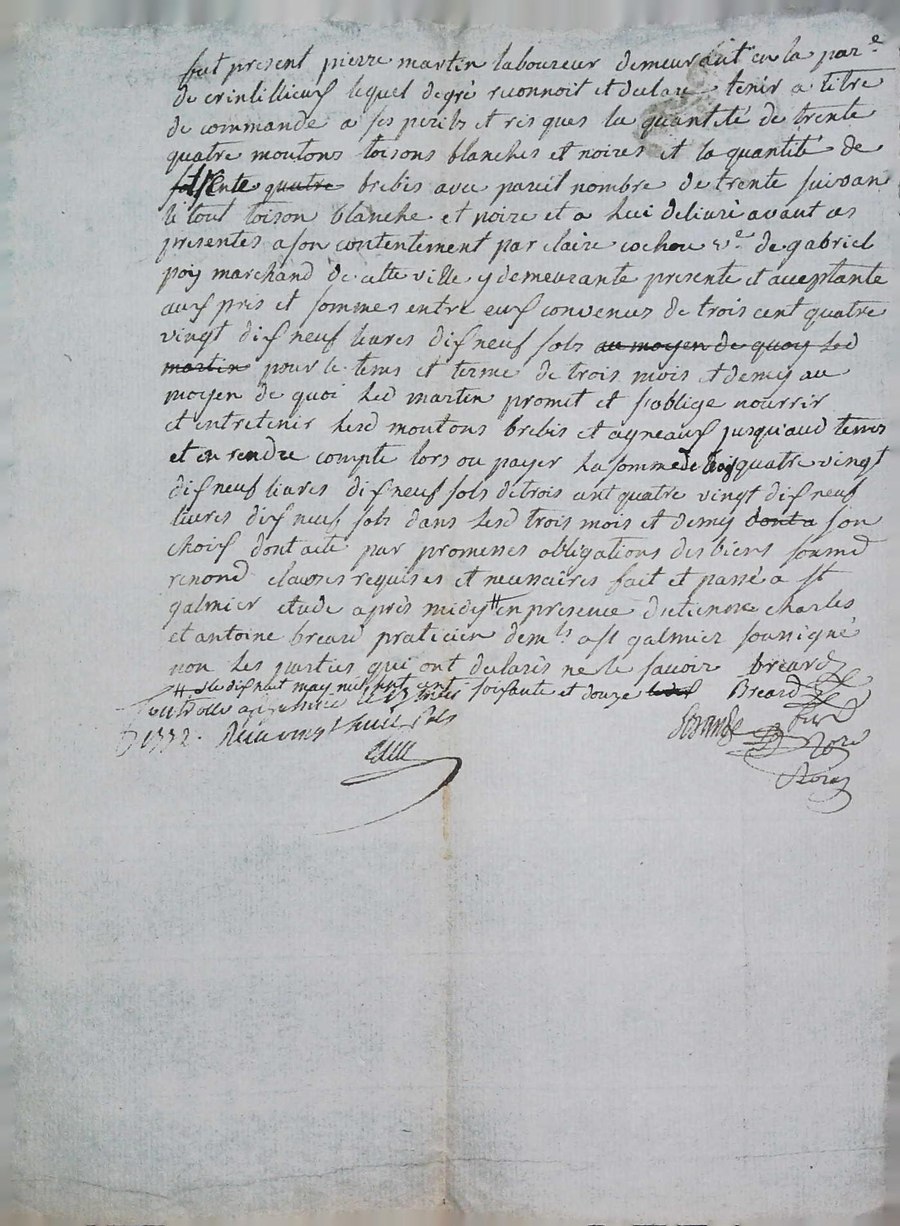 fut present pierre martin laboureur demeurant en la par.e
de crintillieux lequel degré reconnoit et declare tenir a titre
de commande a ses perils et risques la quantité de trente
quatre moutons toisons blanches et noires et la quantité de
trente quatre brebis avec pareil nombre de trente suivan
le tout toison blanche et noire et a lui delivré avant ces
presentes a son contentement par claire cochou v.e de gabriel
poy marchand de cette ville y demeurante presente et acceptante
aux pris et sommes entre eux convenus de trois cent quatre
vingt dix neuf livres dix neuf sols au moyen de quoy led
martin pour le tems et terme de trois mois et demy au
moyen de quoi led martin promet et s'oblige nourrir
et entretenir lesd moutons brebis et agneaux jusqu'aud tems
et en rendre compte lors ou payer la somme de trois quatre vingt
dix neuf livres dix neuf sols de trois cent quatre vingt dix neuf
livres dix neuf sols dans lesd trois mois et demy dont a son
choix dont acte par promesses obligations des biens soumd
renond clauses requises et necessaires fait et passé a st
galmier etude après midy # en presence d'etienne charles
et antoine breard praticien dem.ts a st galmier soussigné
non les parties qui ont declarés ne le savoir breard
# le dix huit may mil sept cent soixante et douze Breard
1772. Recu vingt huit sols